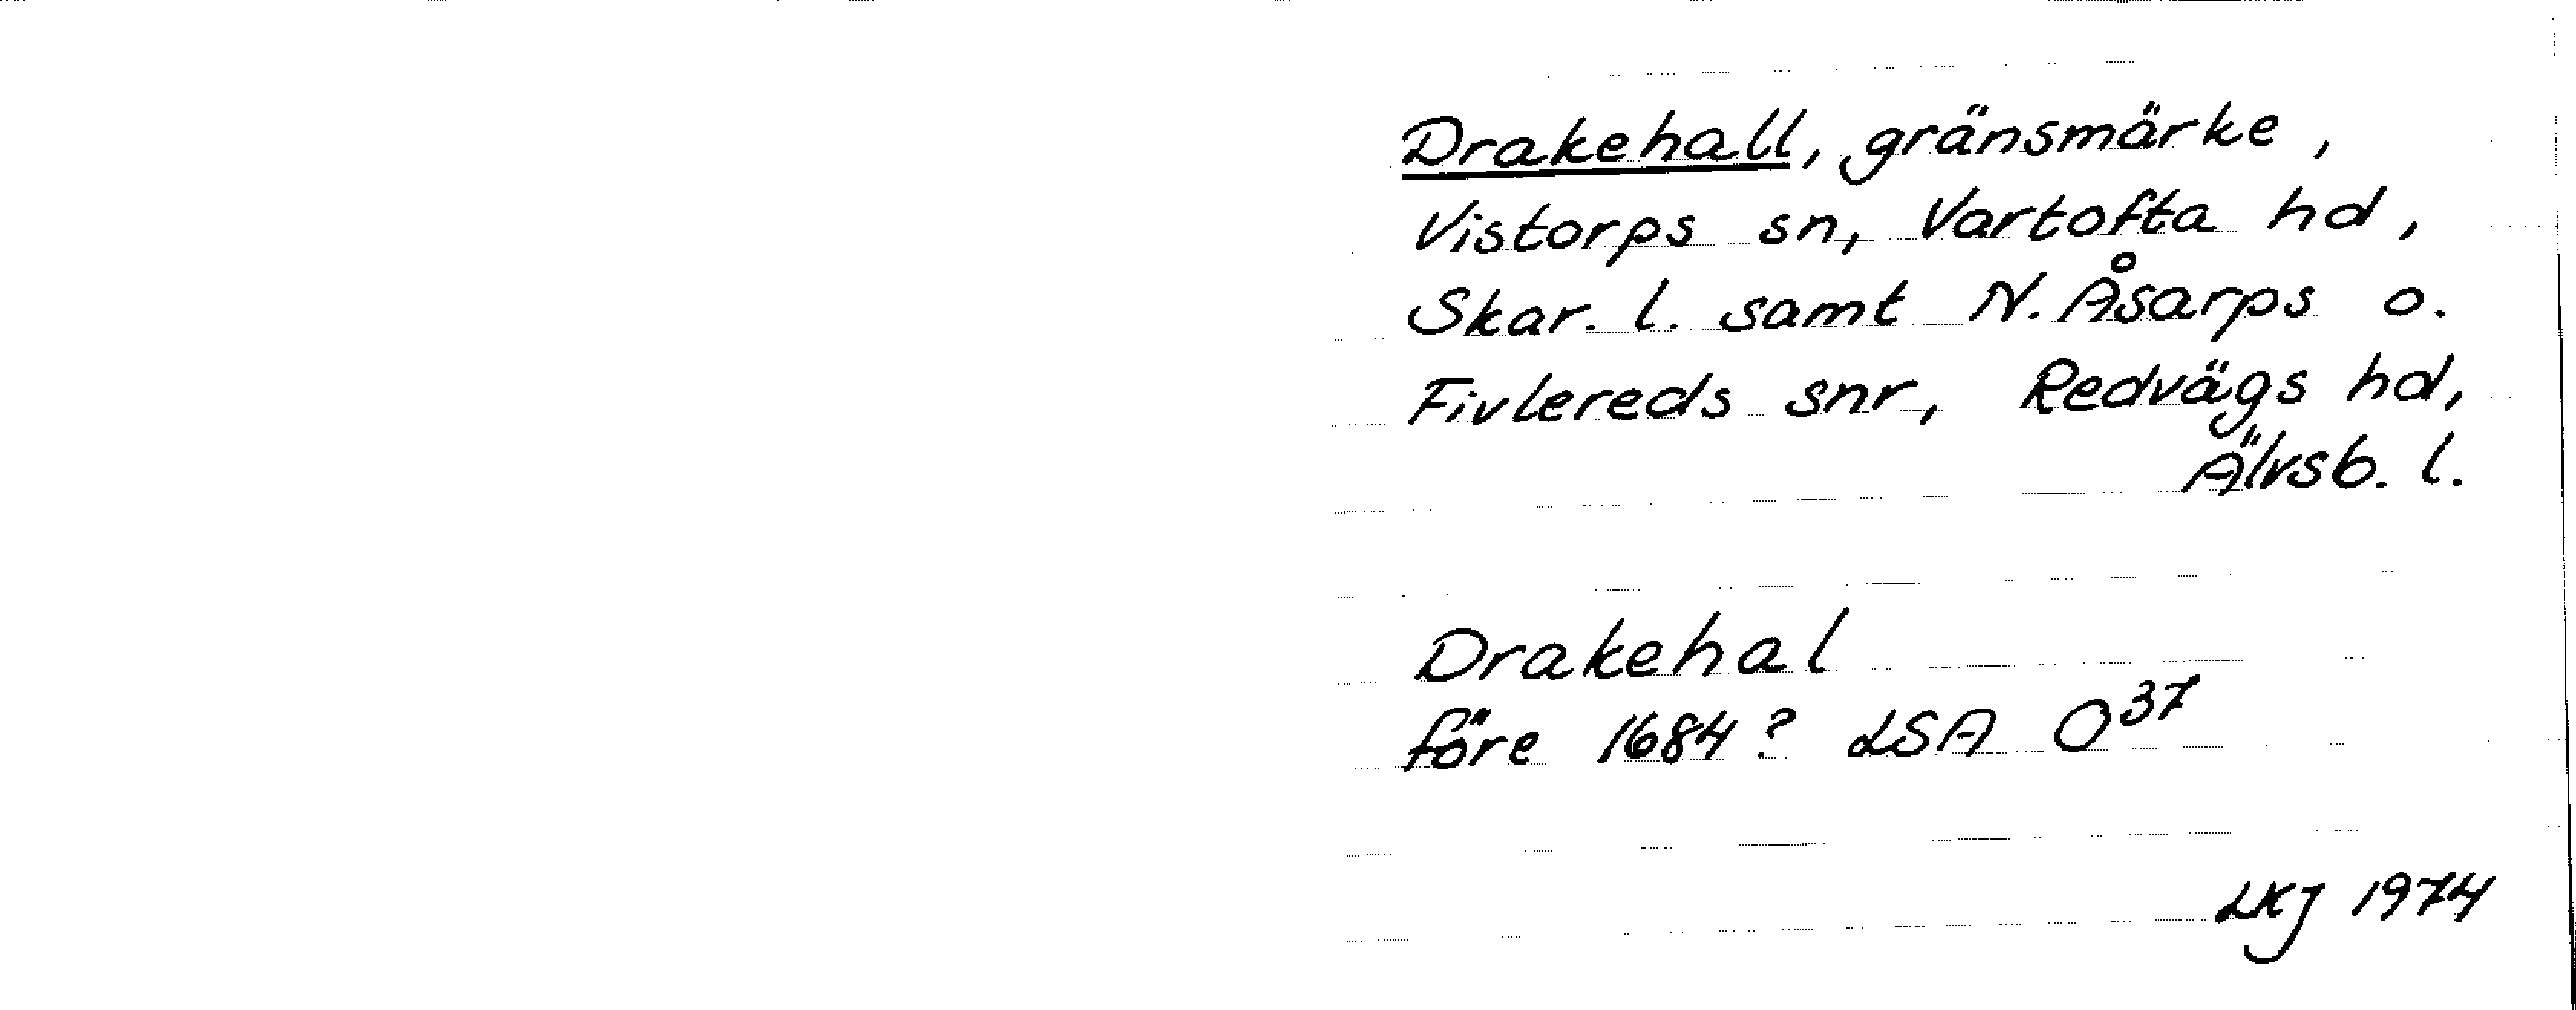 Drakehall, gränsmärke,
Vistorps sn, Vartofta hd,
Skar. l. samt N. Åsarps o.
Fivlereds snr, Redvägs hd,
Älvsb. l.
Drakehal
före 1684? LSA O37
LKJ 1974